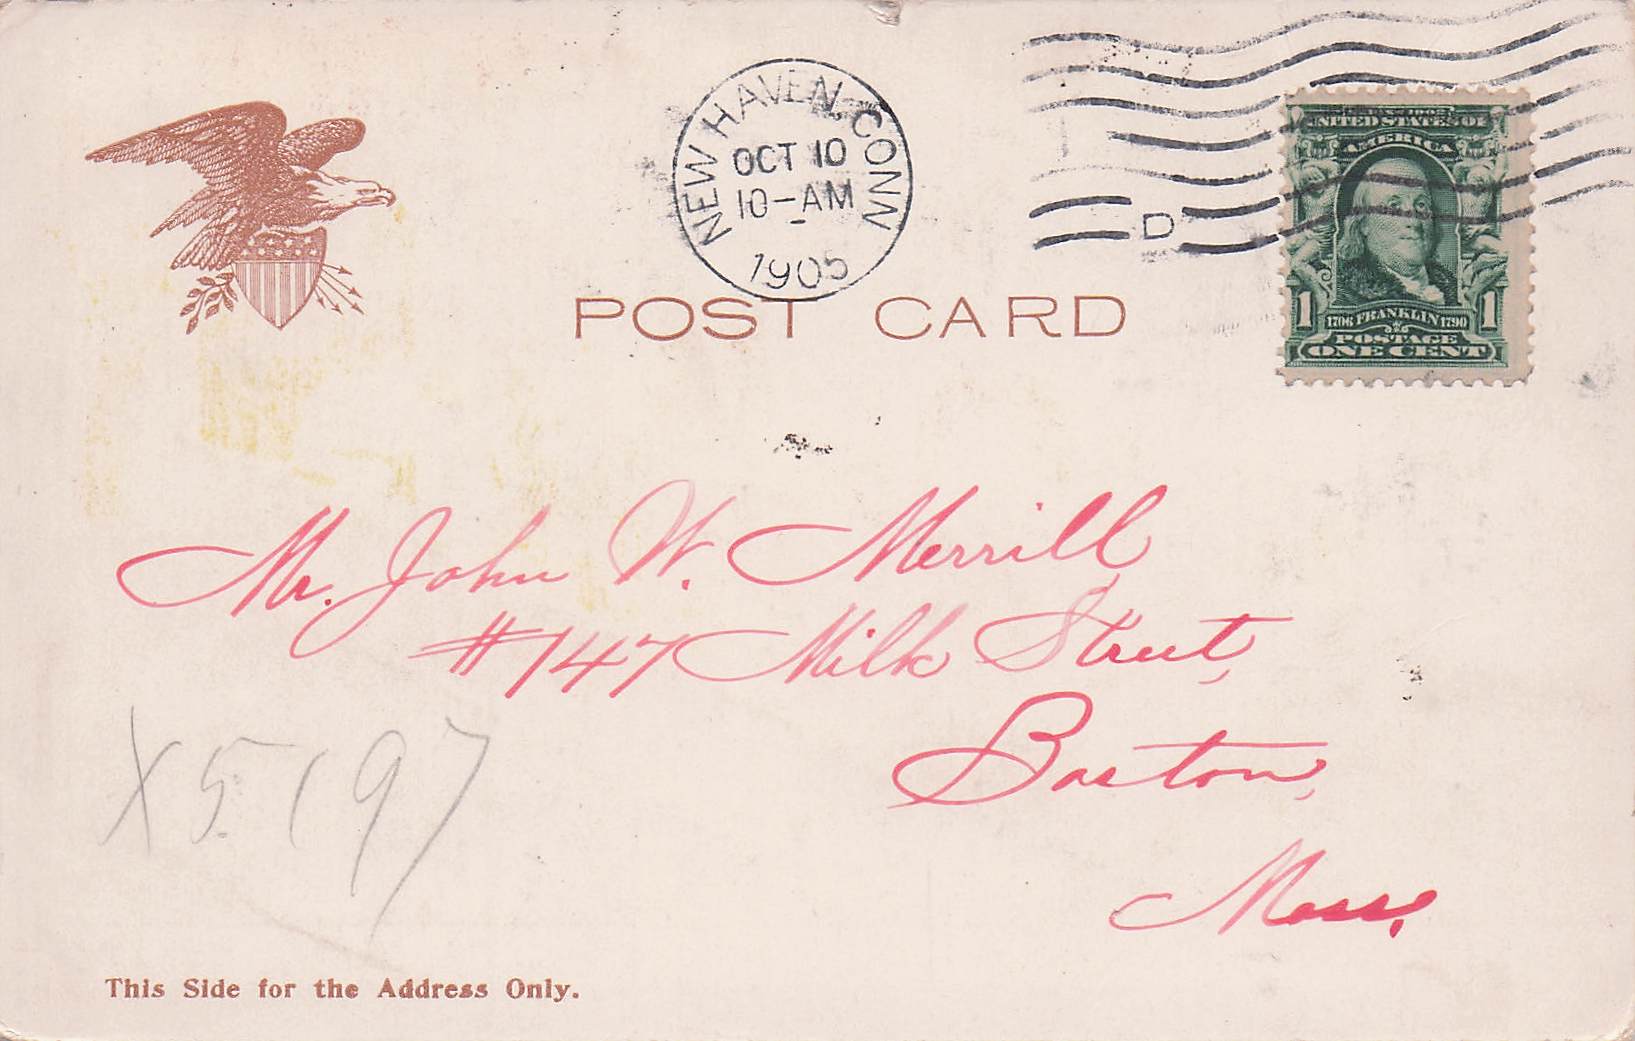 NEW HAVEN, CONN
OCT 10
10-AM
1905
D
SERIES 1902
UNITED STATES OF
AMERICA
1 1706 FRANKLIN 1790 1
POSTAGE
ONE CENT
POST CARD
Mr. John W. Merrill
#147 Milk Street,
Boston,
Mass.
X5197
This Side for the Address Only.